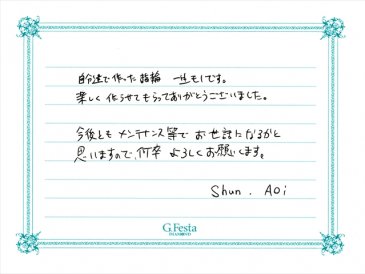 自分達で作った指輪 一生モノです。
楽しく 作らせてもらってありがとうございました。
今後とも メンテナンス等で お世話になるかと
思いますので、何卒 よろしくお願いします。
Shun . Aoi
G.Festa
DIAMOND